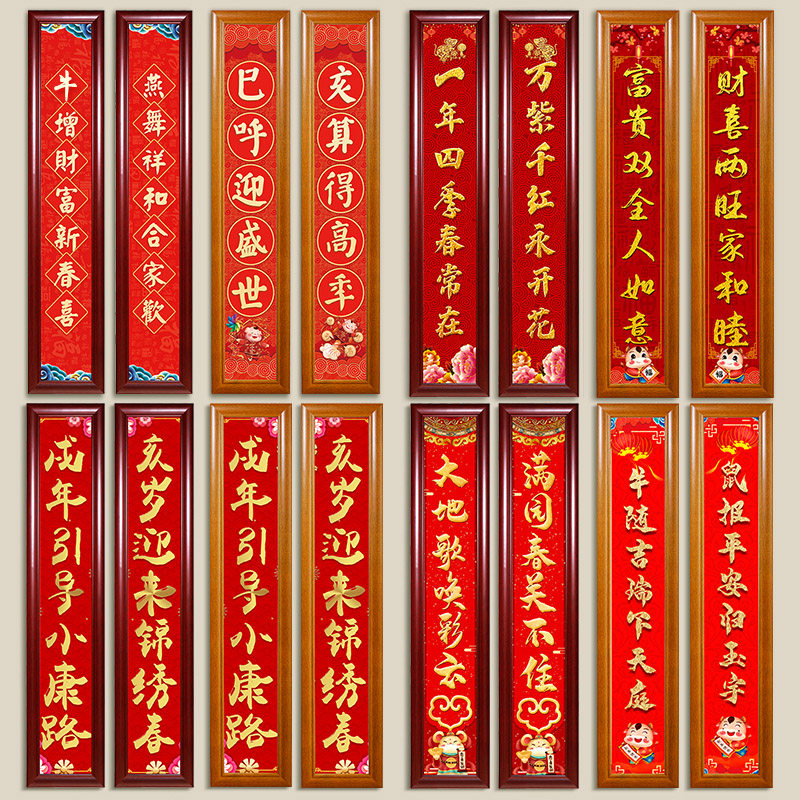 牛增財富新春喜
燕舞祥和合家歡
巳呼迎盛世
亥算得高年
一年四季春常在
万紫千红永开花
富貴双全人如意
财喜两旺家和睦
戌年引导小康路
亥岁迎来锦绣春
戌年引导小康路
亥岁迎来锦绣春
大地歌唤彩云
满园春关不住
牛随吉瑞下天庭
鼠报平安归玉宇
福
福